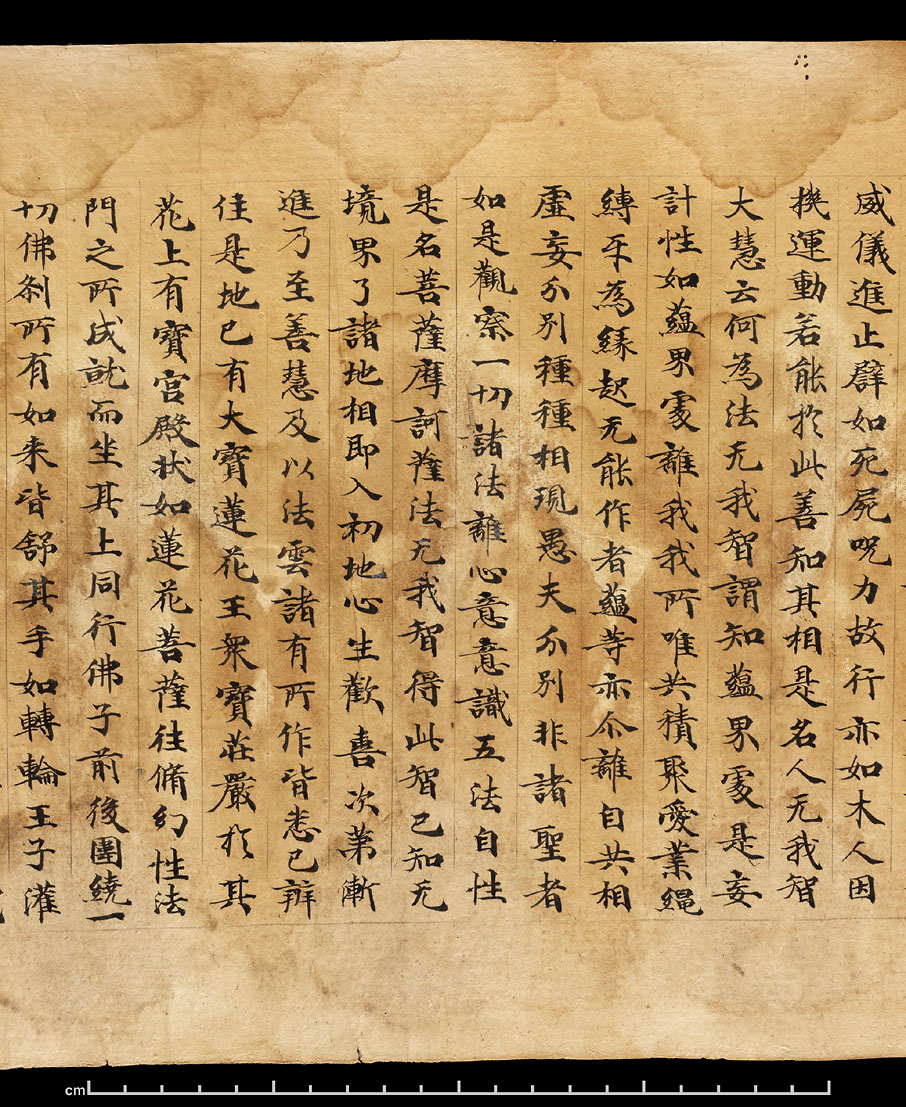 威儀進止譬如死屍呪力故行亦如木人因
機運動若能於此善知其相是名人无我智
大慧云何為法无我智謂知蘊界處是妄
計性如蘊界處離我我所唯共積聚愛業繩
縛䒑為緣起无能作者蘊等亦尒離自共相
虛妄分別種種相現愚夫分別非諸聖者
如是觀察一切諸法離心意意識五法自性
是名菩薩摩訶薩法无我智得此智已知无
境界了諸地相即入初地心生歡喜次第漸
進乃至善慧及以法雲諸有所作皆悉已辦
住是地已有大寶蓮花王衆寶莊嚴於其
花上有寶宮殿狀如蓮花菩薩往脩幻性法
門之所成就而坐其上同行佛子前後圍繞一
切佛剎所有如来皆舒其手如轉輪王子灌
cm